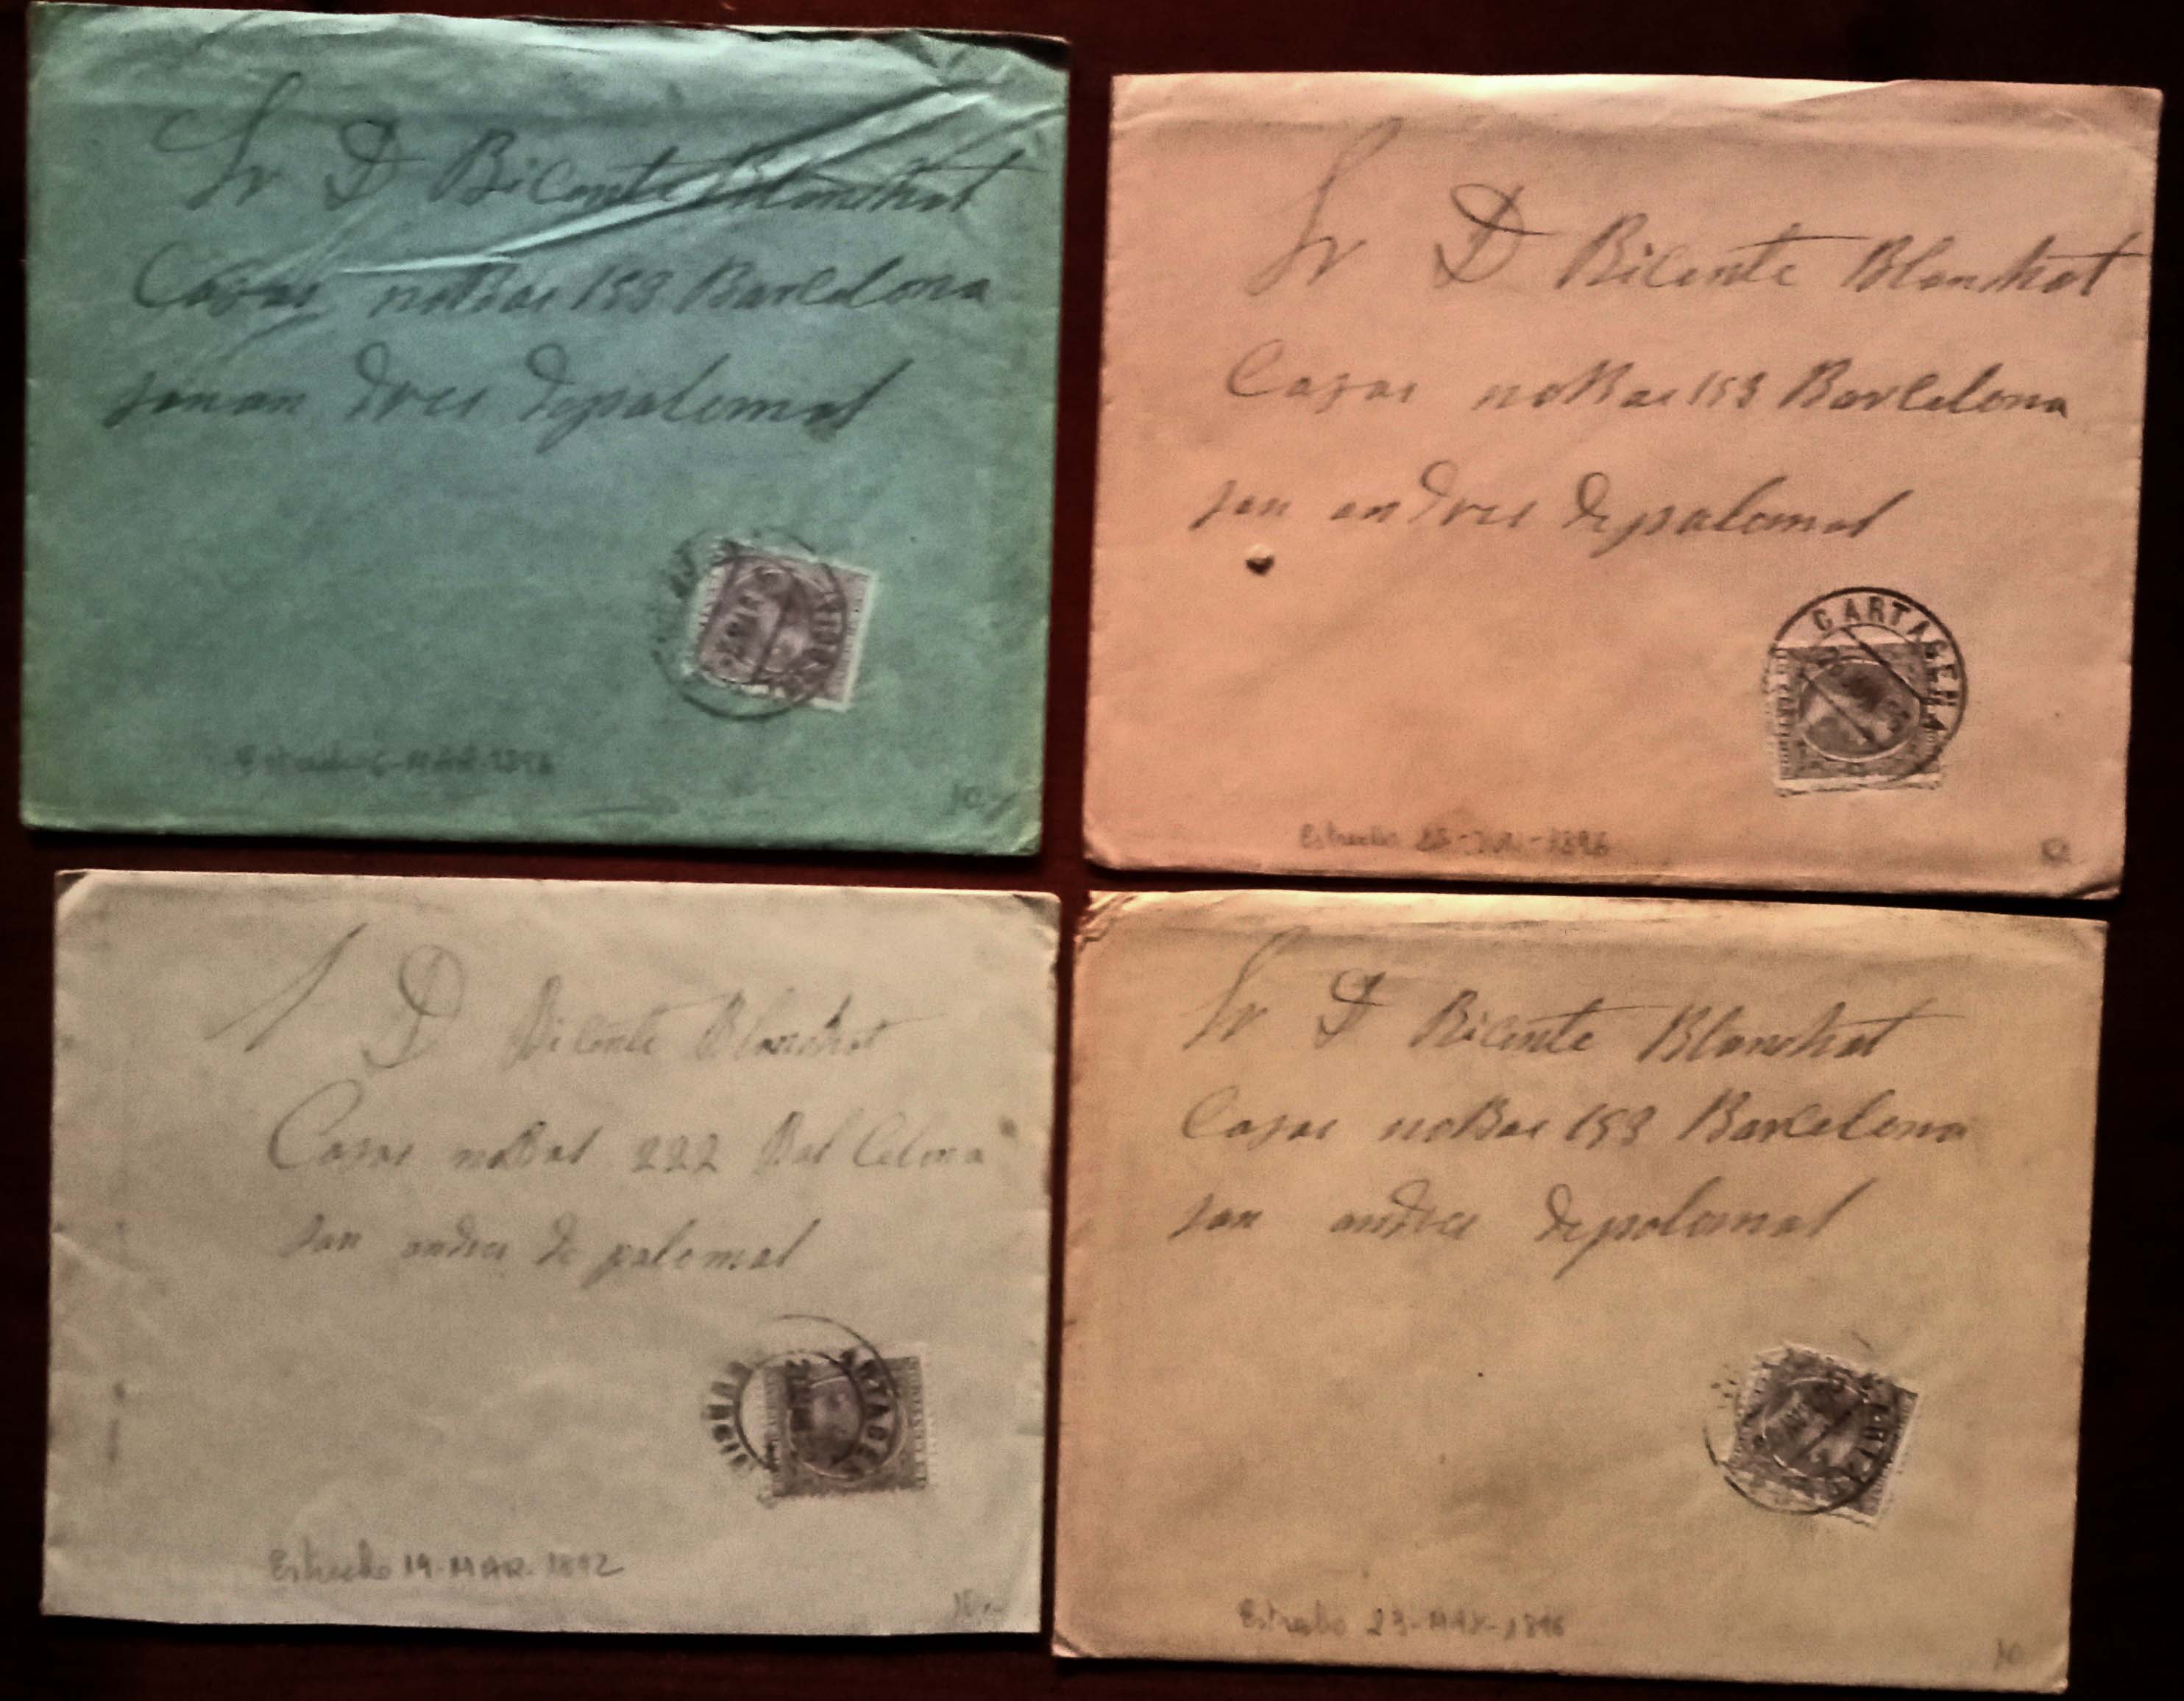 Sr D Bicente Blanchat
Casas noBas 153 Barcelona
sanan dres depalomal
Estrecho 6-MAR-1896
10
Sr D Bicente Blanchat
Casas noBas 153 Barcelona
san andres depalomal
CARTAGENA
Estrecho 25-JUN-1896
D Bicente Blanchat
Casas noBas 222 Bal Celona
san andres de palomal
CARTAGENA
MURCIA
Estrecho 19-MAR-1892
10
Sr D Bicente Blanchat
Casas noBas 153 Barcelona
san andres depalomal
Estrecho 23-MAY-1896
10